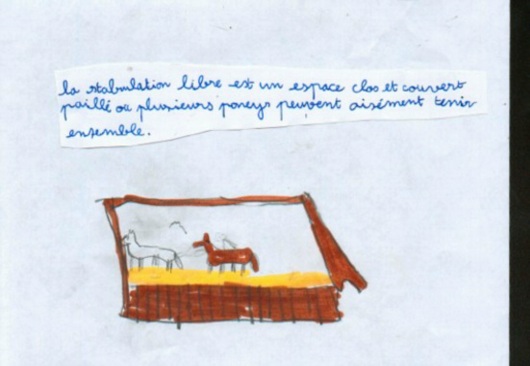 la stabulation libre est un espace clos et couvert
paillé ou plusieurs poneys peuvent aisément tenir
ensemble.